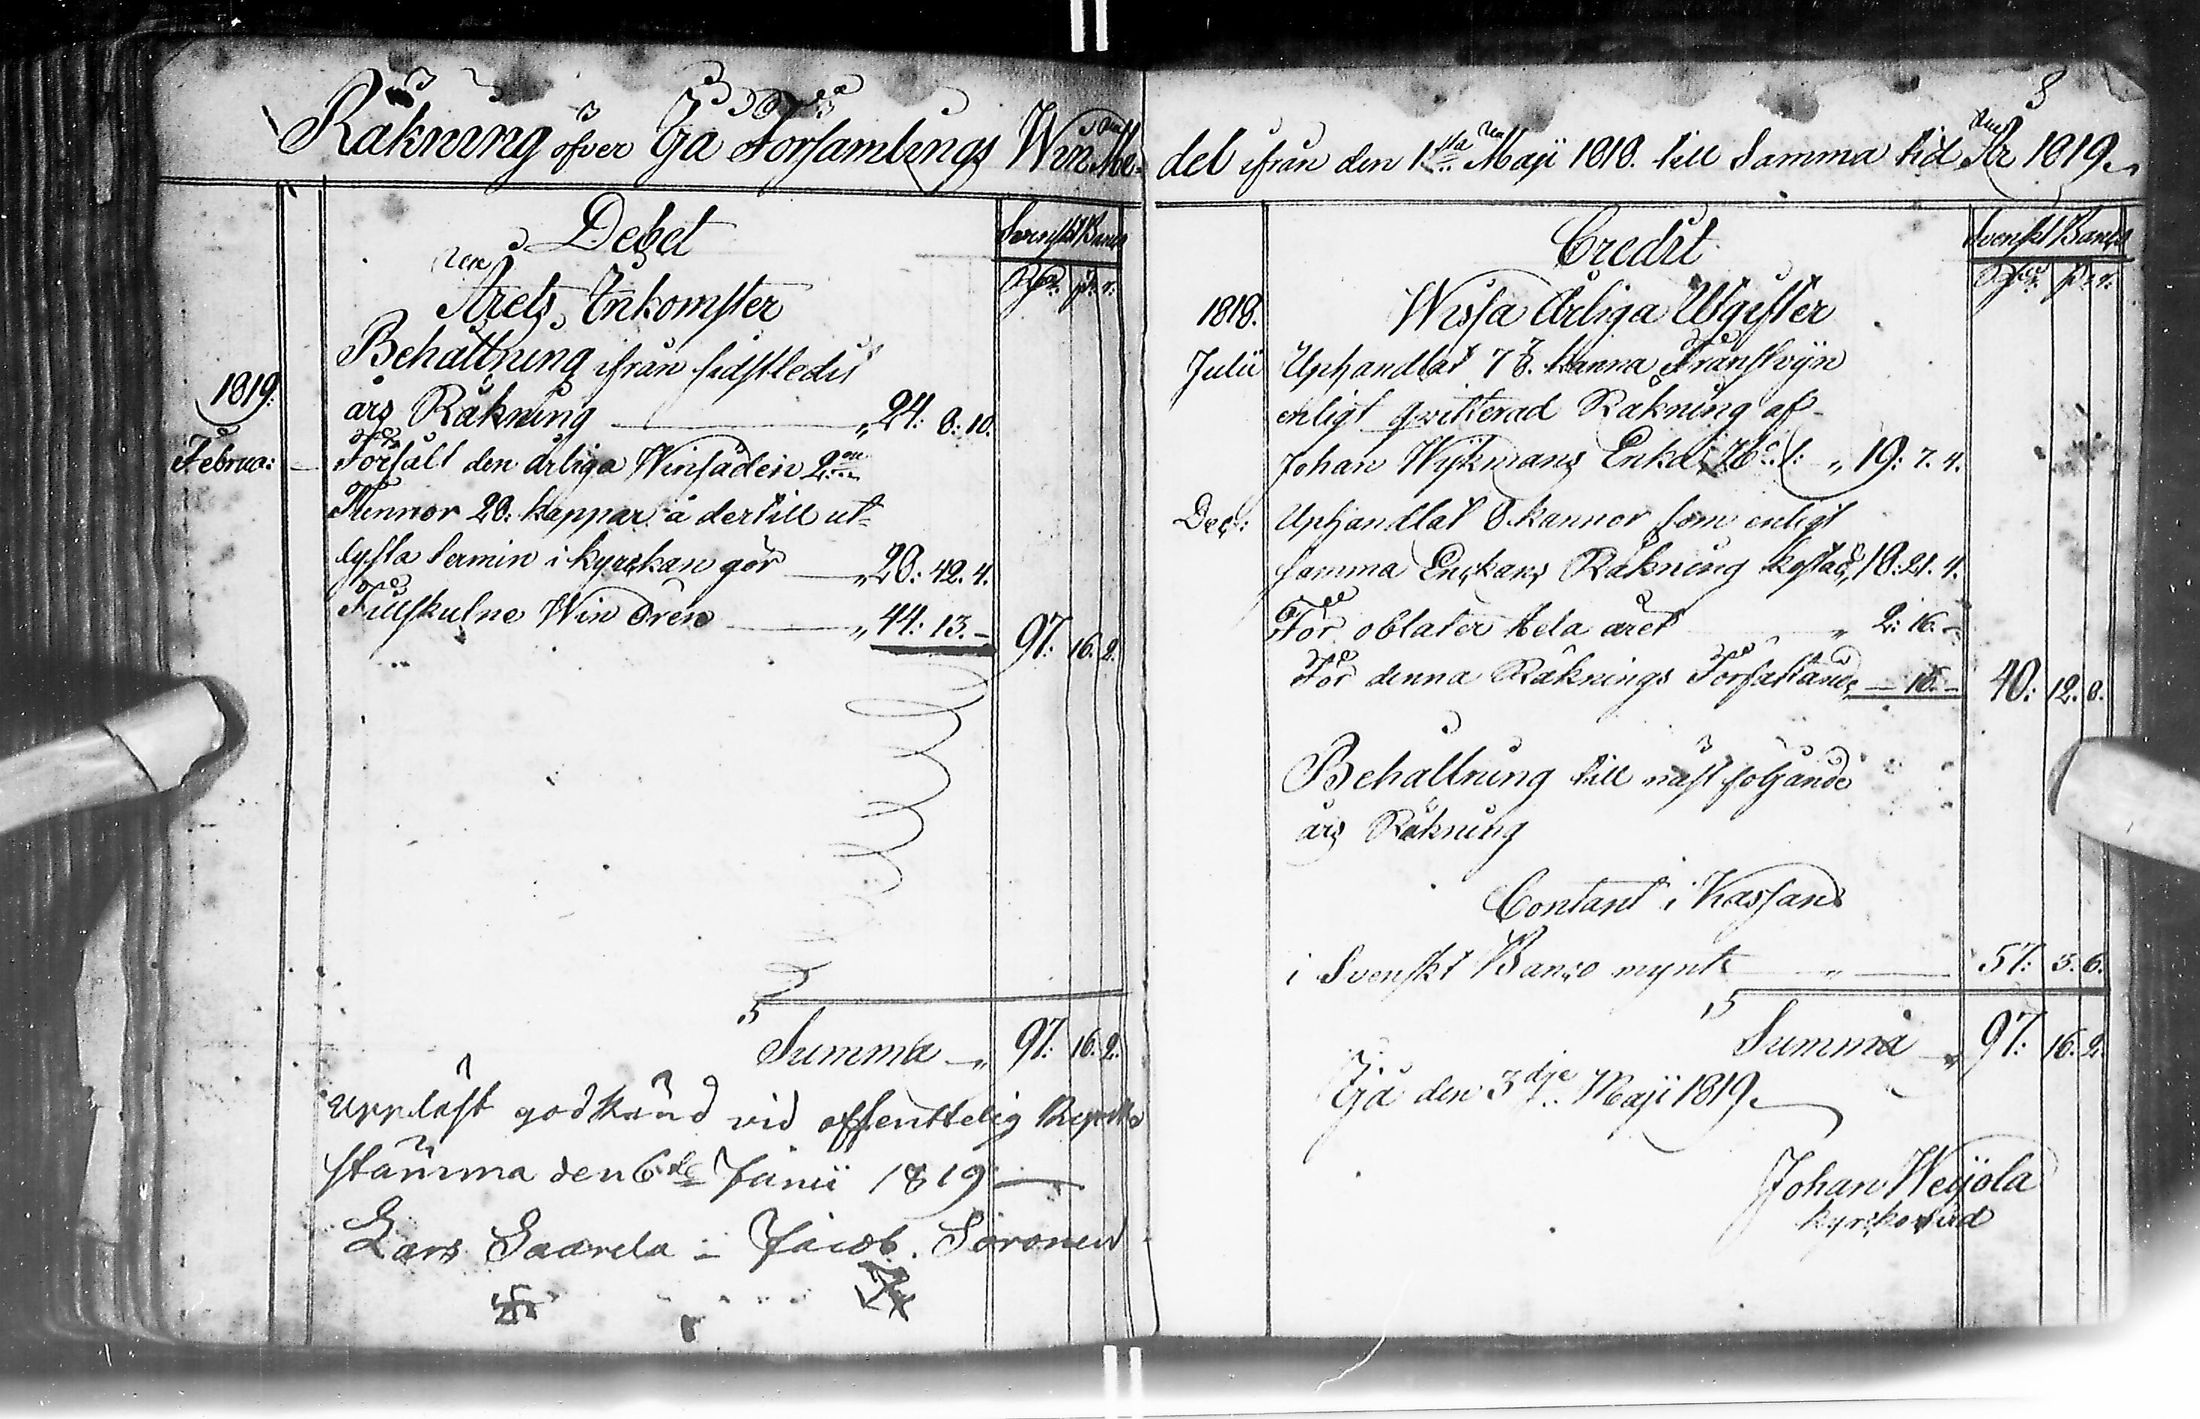 Räkning öfver Ijå Församlings Win Me-
Debet
Svenskt Banco
Rdr. ß. r.
Årets Inkomster
Behållning ifrån sidstledit
1819.
års Räkning „ 24: 8: 10.
Februa: Försålt den årliga Winsäden 2:ne
Tunnor 20: kappar å dertill ut-
lysta termin i kyrckan gör „ 28: 42. 4.
Tillskutne Win ören „ 44: 13. - 97: 16. 2.
Summa „ 97: 16. 2.
Uppläst godkänd vid offenttelig Kyrko
stämma den 6te Junii 1819
Lars Saarela - Jacob. Soronen
8
del ifrån den 1sta Maji 1818. till Samma tid År 1819.
Credit
Svenskt Banco
Rdr. ß. r.
1818. Wissa Årliga Utgifter
Julii Uphandlat 7 kanna Franskvijn
enligt qvitterad Räkning af
Johan Wijkmans Enka „ 19: 7. 4.
Dec: Uphandlat 8 kannor som enligt
samma Enckans Räkning kostad „ 18: 21. 4.
För oblater hela året „ 2: 16. -
För denna Räknings Författande - 16. - 40: 12. 8.
Behållning till nästfoljande
års Räkning
Contant i Kassan
i Svenskt Banco mynt „ 57: 3. 6.
Summa „ 97: 16. 2.
Ijå den 3dje Maji 1819.
Johan Weijola
kyrckovärd